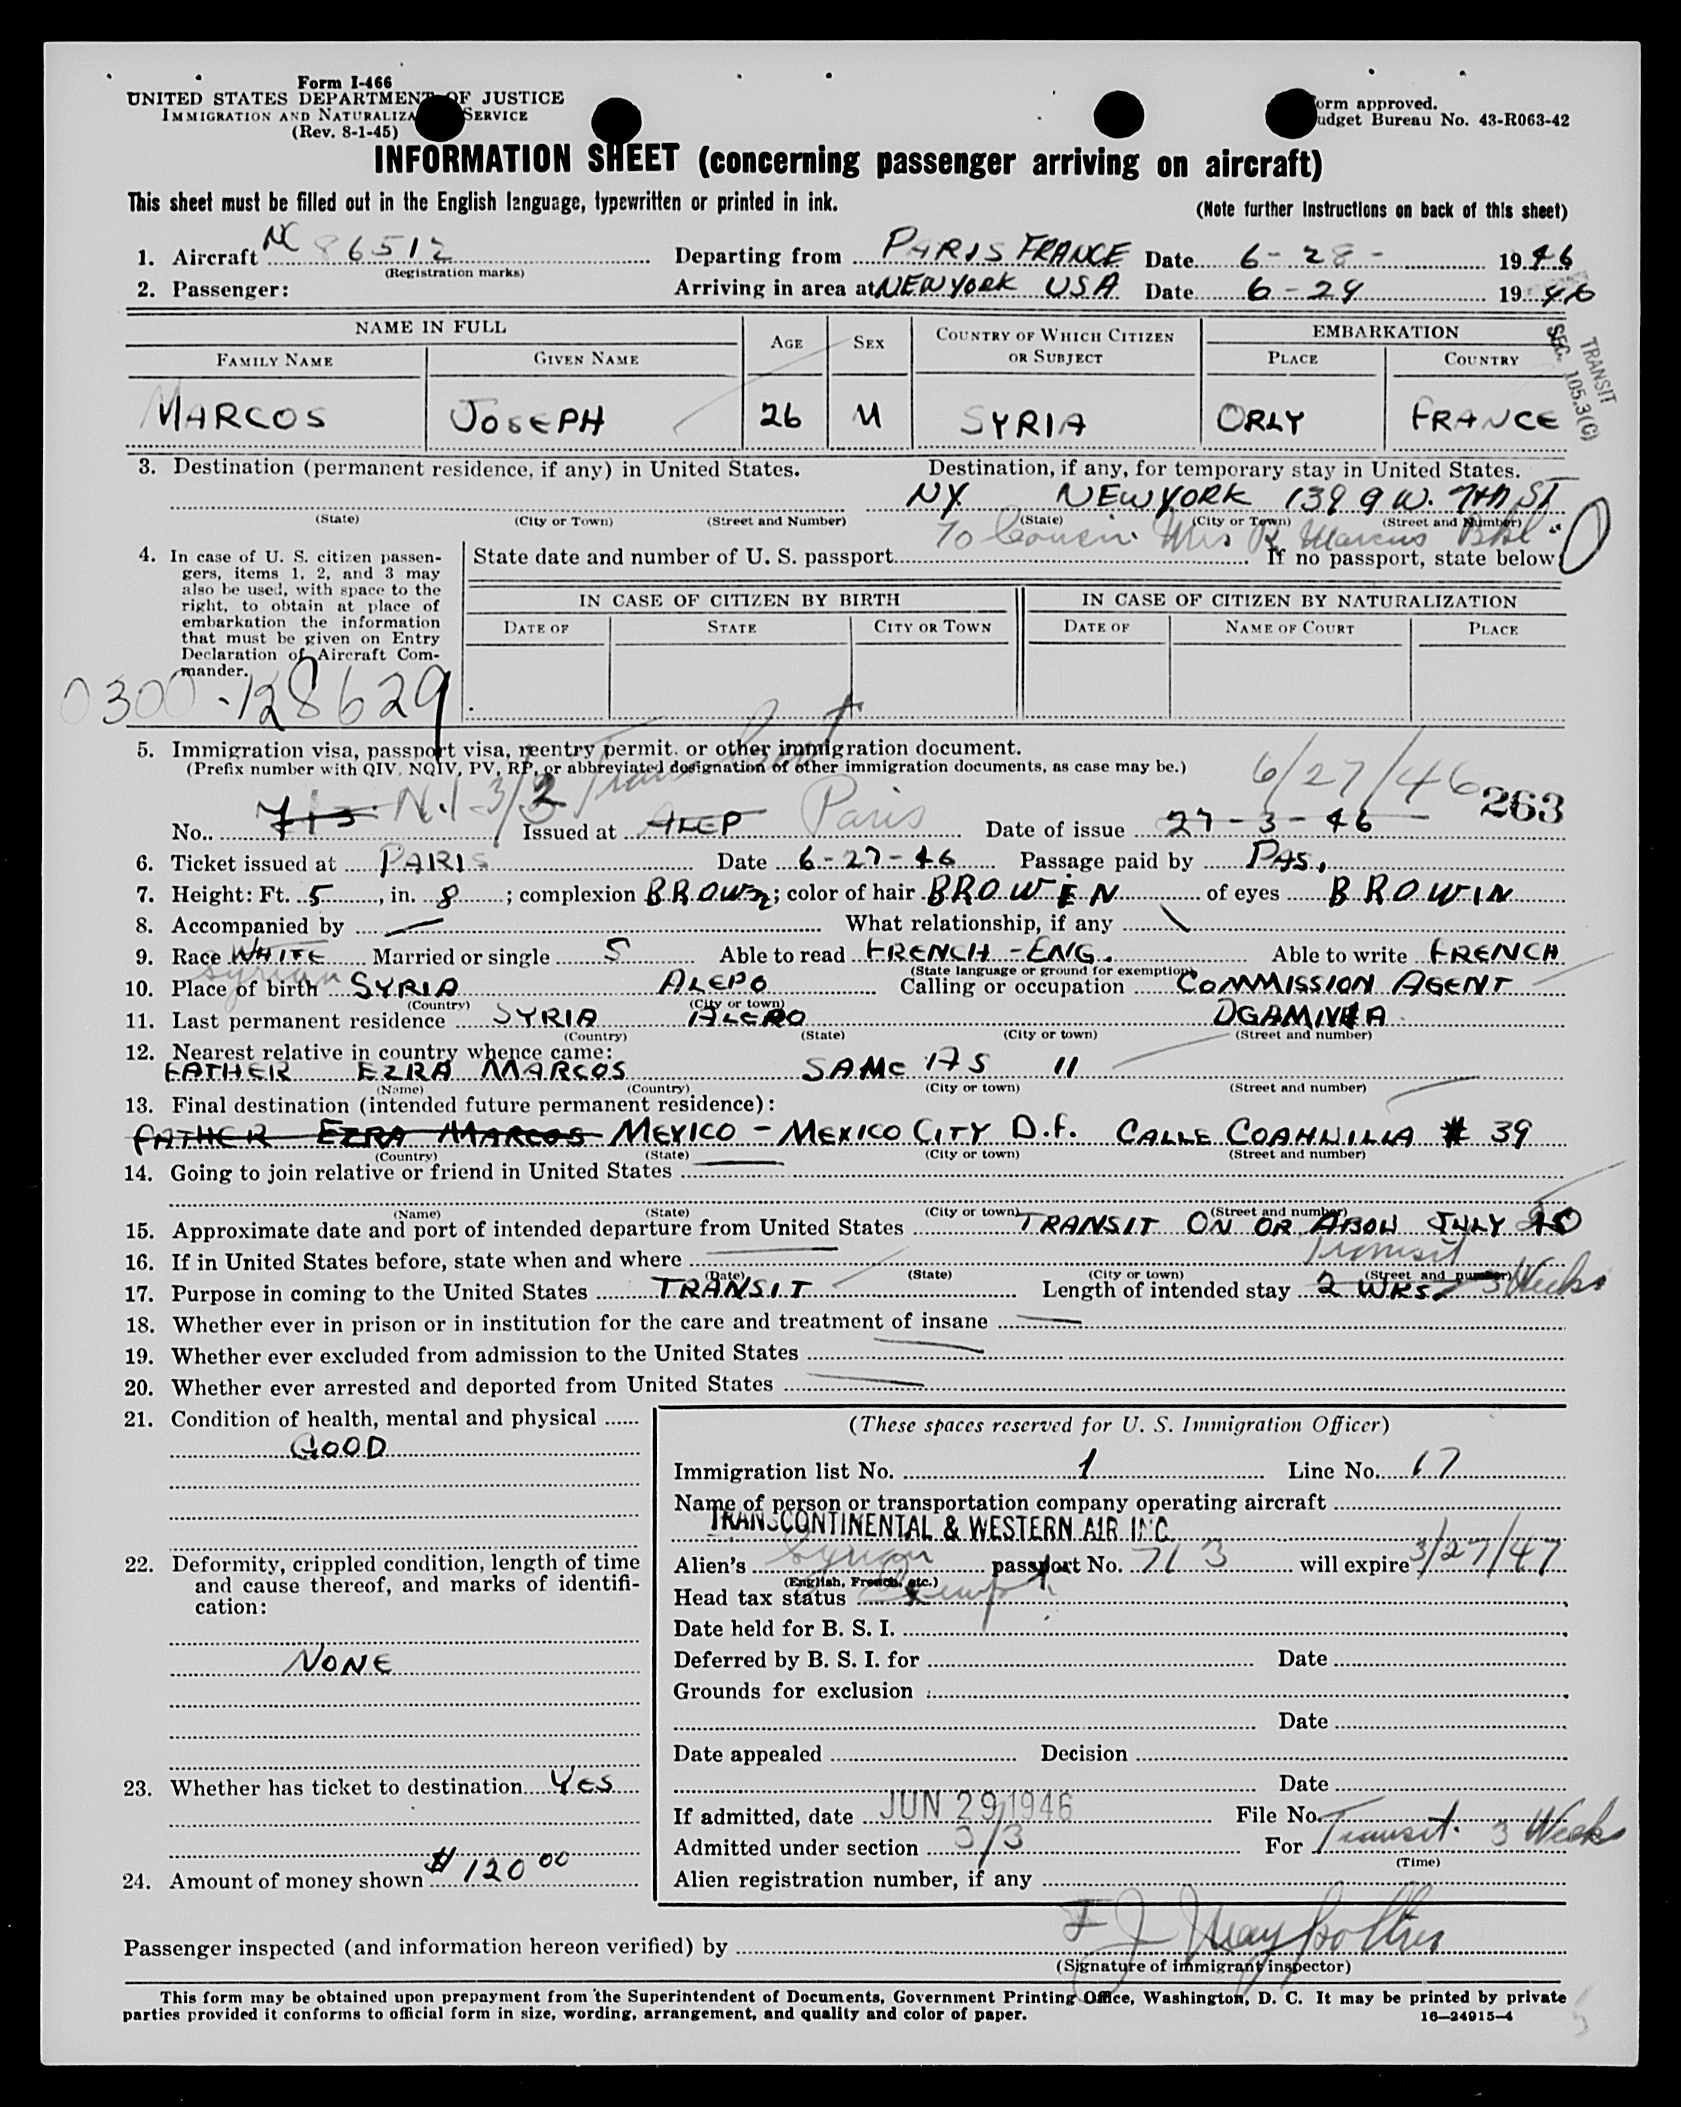 Form I-466
UNITED STATES DEPARTMENT OF JUSTICE
IMMIGRATION AND NATURALIZA SERVICE
(Rev. 8-1-45)
orm approved.
udget Bureau No. 43-R063-42
INFORMATION SHEET (concerning passenger arriving on aircraft)
This sheet must be filled out in the English language, typewritten or printed in ink.
(Note further instructions on back of this sheet)
1. Aircraft NC 86512 Departing from PARIS FRANCE Date 6-28- 1946
(Registration marks)
2. Passenger: Arriving in area at NEW YORK USA Date 6-29 1946
NAME IN FULL
FAMILY NAME GIVEN NAME AGE SEX COUNTRY OF WHICH CITIZEN OR SUBJECT EMBARKATION PLACE COUNTRY
TRANSIT
SEC. 105.3(C)
MARCOS JOSEPH 26 M SYRIA ORLY FRANCE
3. Destination (permanent residence, if any) in United States. Destination, if any, for temporary stay in United States.
NY. NEW YORK 139 9 W. 7TH ST
(State) (City or Town) (Street and Number) (State) (City or Town) (Street and Number)
To Cousin Mrs Marcus Bkl
4. In case of U. S. citizen passengers, items 1, 2, and 3 may also be used, with space to the right, to obtain at place of embarkation the information that must be given on Entry Declaration of Aircraft Commander.
State date and number of U. S. passport If no passport, state below
IN CASE OF CITIZEN BY BIRTH IN CASE OF CITIZEN BY NATURALIZATION
DATE OF STATE CITY OR TOWN DATE OF NAME OF COURT PLACE
0300-128629
5. Immigration visa, passport visa, reentry permit, or other immigration document.
(Prefix number with QIV, NQIV, PV, RP, or abbreviated designation of other immigration documents, as case may be.)
6/27/46 263
No. Issued at ALEP Paris Date of issue 27-3-46
6. Ticket issued at PARIS Date 6-27-46 Passage paid by PAS.
7. Height: Ft. 5, in. 8; complexion BROWn; color of hair BROWEN of eyes BROWIN
8. Accompanied by — What relationship, if any
9. Race WHITE Married or single S Able to read FRENCH-ENG. Able to write FRENCH
Syrian
(State language or ground for exemption)
10. Place of birth SYRIA ALEPO Calling or occupation COMMISSION AGENT
(Country) (City or town)
11. Last permanent residence SYRIA ALEPO DGAMINIA
(Country) (State) (City or town) (Street and number)
12. Nearest relative in country whence came:
FATHER EZRA MARCOS SAME AS 11
(Name) (Country) (City or town) (Street and number)
13. Final destination (intended future permanent residence):
FATHER EZRA MARCOS MEXICO - MEXICO CITY D.F. CALLE COAHUILLA # 39
(Country) (State) (City or town) (Street and number)
14. Going to join relative or friend in United States —
(Name) (State) (City or town) (Street and number)
15. Approximate date and port of intended departure from United States TRANSIT ON OR ABOU JULY 20
16. If in United States before, state when and where — Transit
(Date) (State) (City or town) (Street and number)
17. Purpose in coming to the United States TRANSIT Length of intended stay 2 WKS. 3 Weeks
18. Whether ever in prison or in institution for the care and treatment of insane —
19. Whether ever excluded from admission to the United States —
20. Whether ever arrested and deported from United States —
21. Condition of health, mental and physical
GOOD
22. Deformity, crippled condition, length of time and cause thereof, and marks of identification:
NONE
23. Whether has ticket to destination YES
24. Amount of money shown $ 120 00
(These spaces reserved for U. S. Immigration Officer)
Immigration list No. 1 Line No. 17
Name of person or transportation company operating aircraft
TRANSCONTINENTAL & WESTERN AIR INC.
Alien's Syrian passport No. 713 will expire 3/27/47
(English, French, etc.)
Head tax status Exempt
Date held for B. S. I.
Deferred by B. S. I. for Date
Grounds for exclusion
Date
Date appealed Decision
Date
If admitted, date JUN 29 1946 File No.
Admitted under section 3/3 For Transit. 3 Weeks
(Time)
Alien registration number, if any
Passenger inspected (and information hereon verified) by
(Signature of immigrant inspector)
This form may be obtained upon prepayment from the Superintendent of Documents, Government Printing Office, Washington, D. C. It may be printed by private
parties provided it conforms to official form in size, wording, arrangement, and quality and color of paper.
16—24915-4